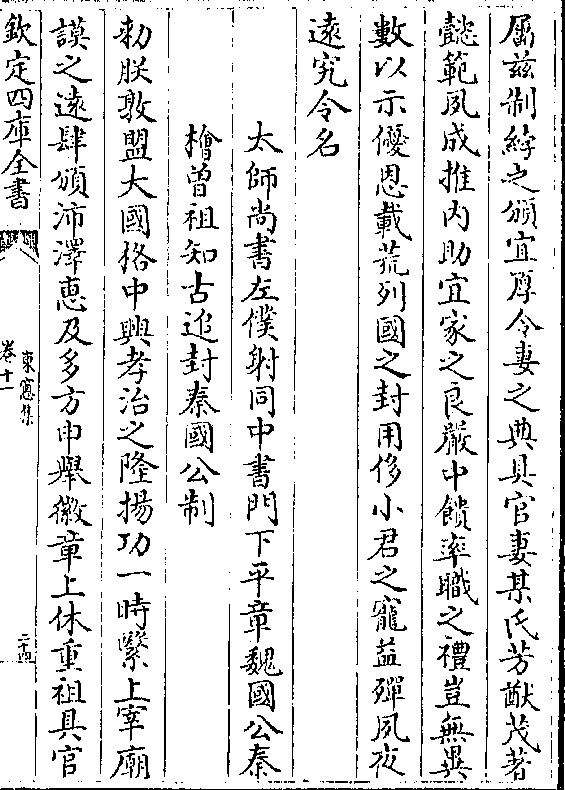 屬兹制綍之頒宜厚令妻之典具官妻某氏芳猷茂著
懿範夙成推内助宜家之良嚴中饋率職之禮豈無異
數以示優恩載荒列國之封用侈小君之寵益殫夙夜
逺究令名
太師尚書左僕射同中書門下平章魏國公秦
檜曽祖知古追封秦國公制
勅朕敦盟大國格中興孝治之隆揚功一時繄上宰廟
謨之逺肆頒沛澤恵及多方申舉徽章上休重祖具官
欽定四庫全書
東窻集
卷十一
二十四